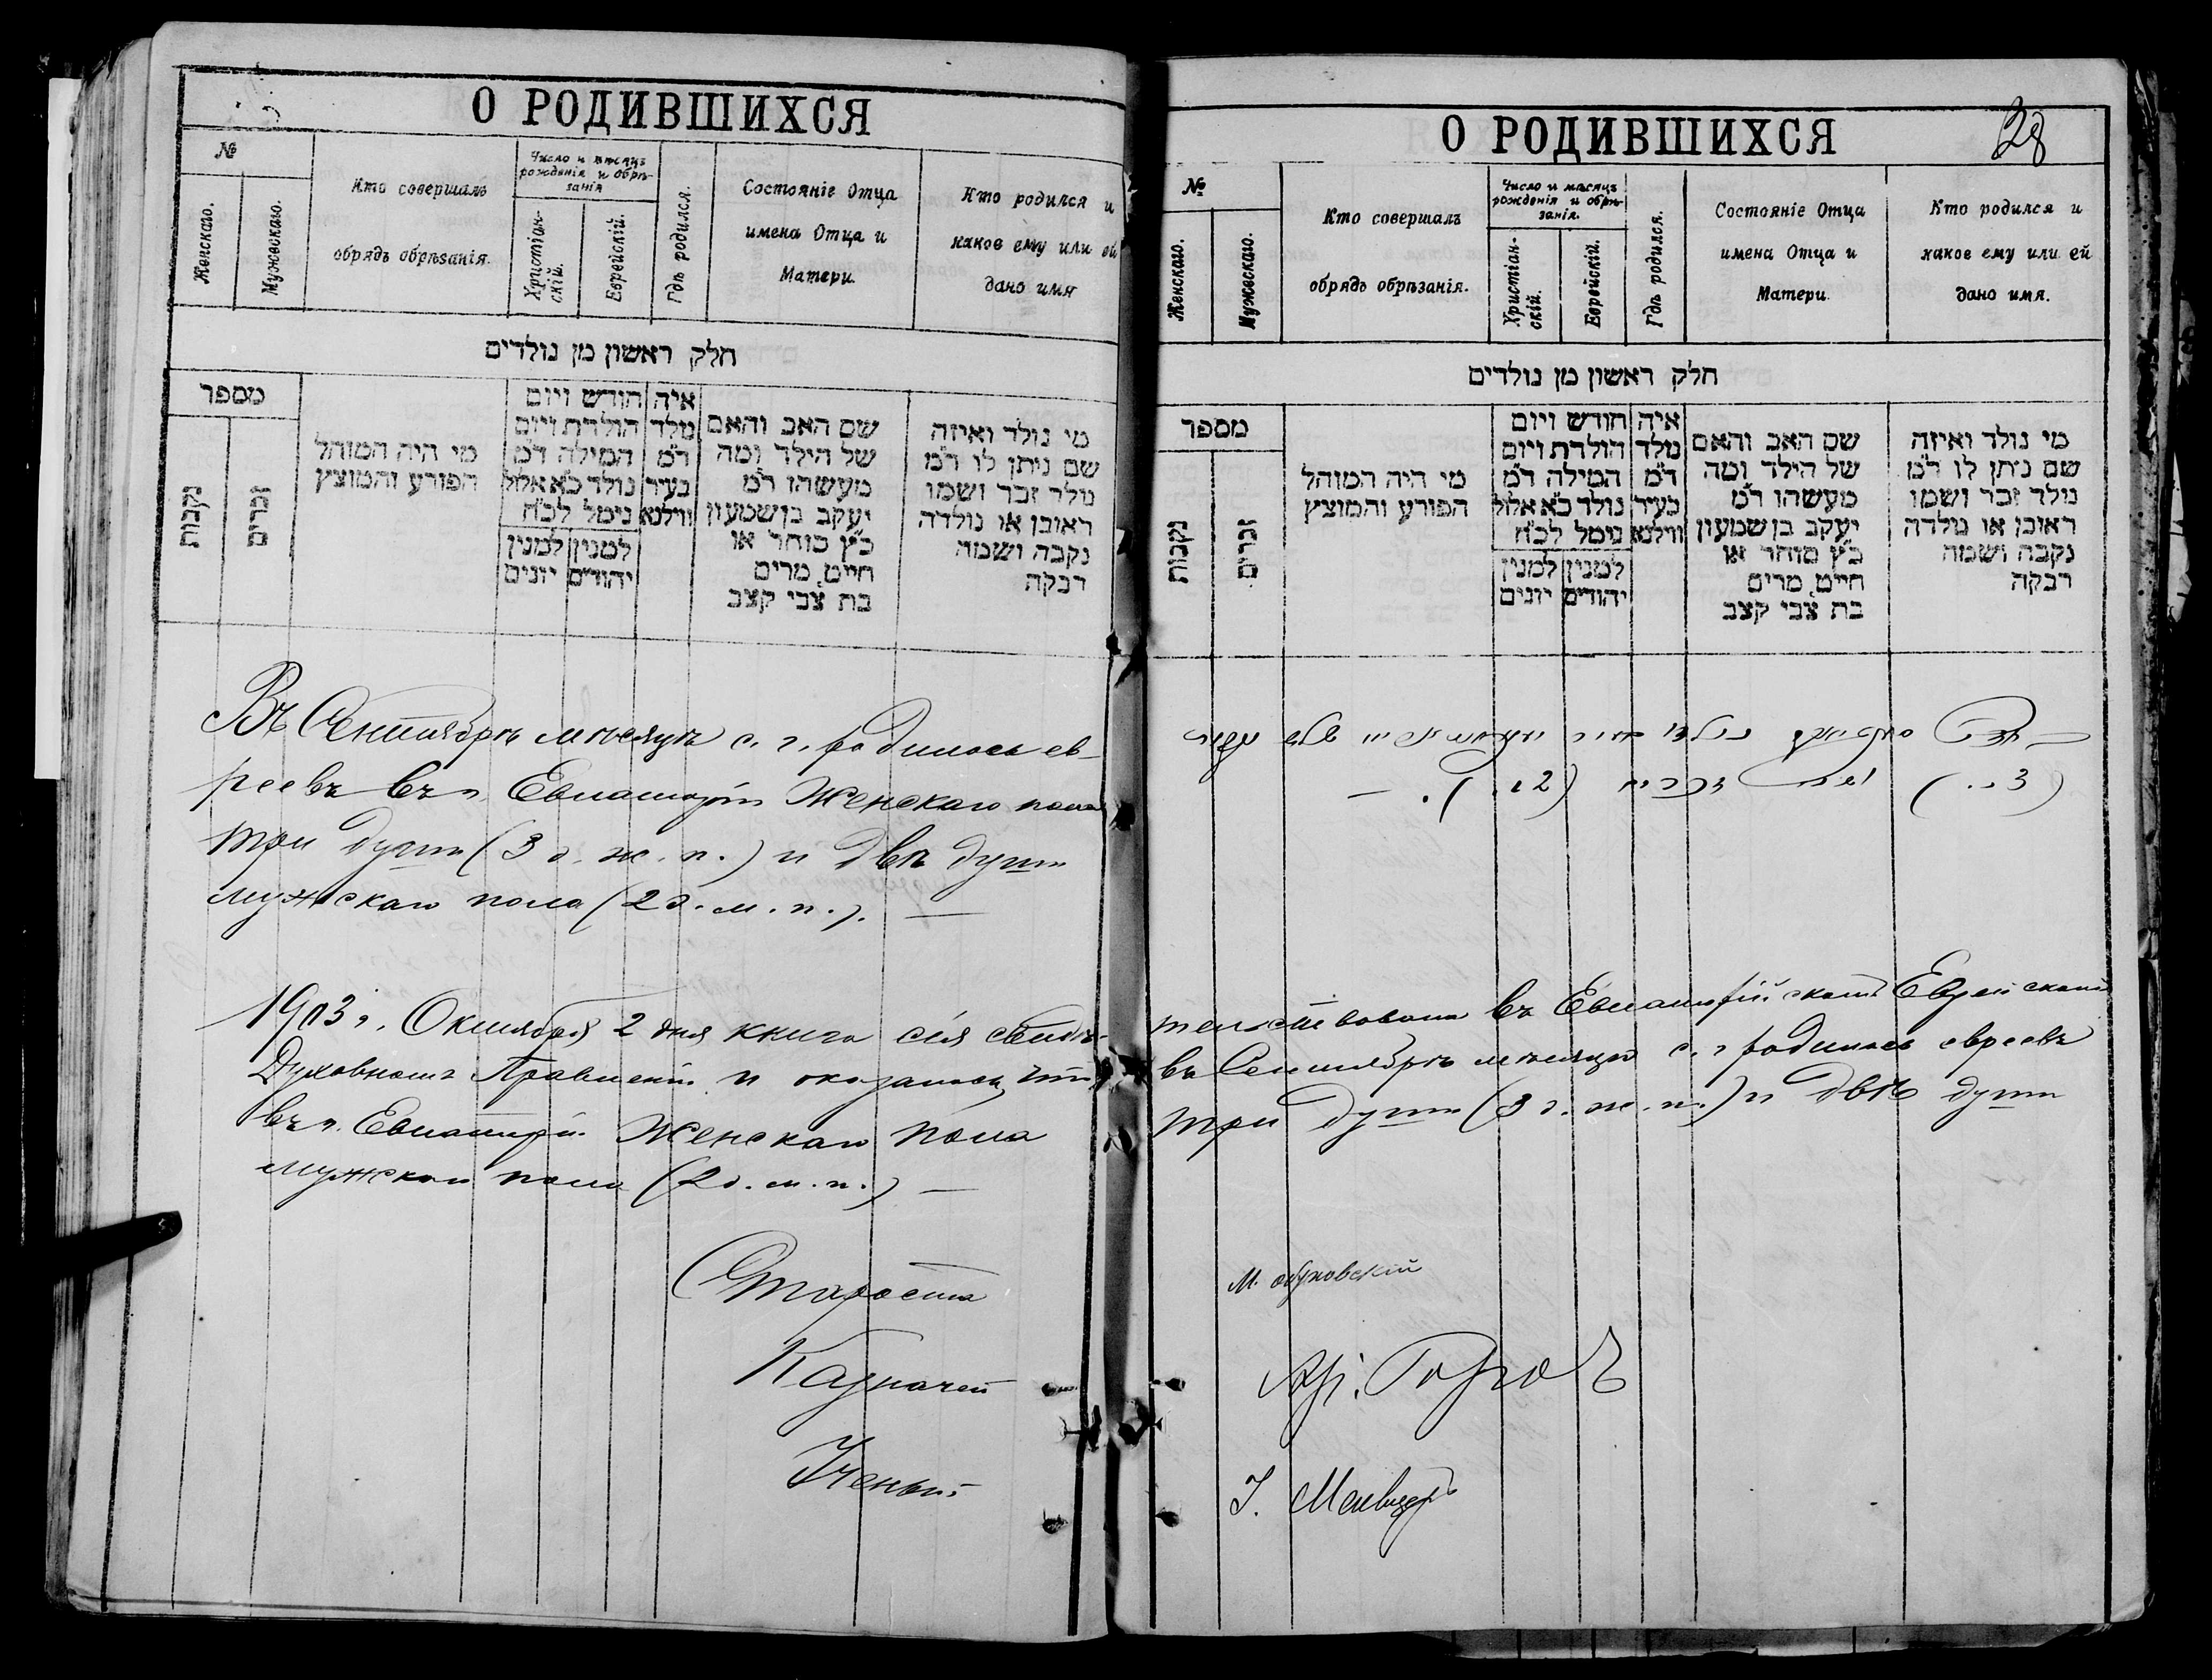 О РОДИВШИХСЯ
№
Женскаго.
Мужескаго.
Кто совершалъ
обрядъ обрѣзанія.
Число и мѣсяцъ
рожденія и обрѣ-
занія
Христіан-
скій.
Еврейскій.
Гдѣ родился.
Состояніе Отца
имена Отца и
Матери.
Кто родился и
какое ему или ей
дано имя
חלק ראשון מן נולדים
מספר
נקבות
זכרים
מי היה המוהל
הפורע והמוצץ
חודש ויום
הולדת ויום
המילה ד״מ
נולד כ״א אלול
נימל לכ״ח
למנין למנין
יהודים יונים
איה
נולד
ד״מ
בעיר
ווילנא
שם האב והאם
של הילד ומה
מעשהו ד״מ
יעקב בן שמעון
כ״ץ סוחר או
חייט, מרים
בת צבי קצב
מי נולד ואיזה
שם ניתן לו ד״מ
נולד זכר ושמו
ראובן או נולדה
נקבה ושמה
רבקה
Въ Сентябрѣ мѣсяцѣ с. г. родилось ев-
реевъ въ г. Евпаторіи Женскаго пола
три души (3 д. ж. п.) и двѣ души
мужскаго пола (2 д. м. п.). —
О РОДИВШИХСЯ
28
№
Женскаго.
Мужескаго.
Кто совершалъ
обрядъ обрѣзанія.
Число и мѣсяцъ
рожденія и обрѣ-
занія.
Христіан-
скій.
Еврейскій.
Гдѣ родился.
Состояніе Отца
имена Отца и
Матери.
Кто родился и
какое ему или ей
дано имя.
חלק ראשון מן נולדים
מספר
נקבות
זכרים
מי היה המוהל
הפורע והמוצץ
חודש ויום
הולדת ויום
המילה ד״מ
נולד כ״א אלול
נימל לכ״ח
למנין למנין
יהודים יונים
איה
נולד
ד״מ
בעיר
ווילנא
שם האב והאם
של הילד ומה
מעשהו ד״מ
יעקב בן שמעון
כ״ץ סוחר או
חייט, מרים
בת צבי קצב
מי נולד ואיזה
שם ניתן לו ד״מ
נולד זכר ושמו
ראובן או נולדה
נקבה ושמה
רבקה
1903 г. Октября 2 дня книга сія свидѣ-тельствована въ Евпаторійскомъ Еврейскомъ
Духовномъ Правленіи и оказалось, что въ Сентябрѣ мѣсяцѣ с. г. родилось евреевъ
въ г. Евпаторіи Женскаго пола три души (3 д. ж. п.) и двѣ души
мужскаго пола (2 д. м. п.) —
Староста
Казначей
Ученый